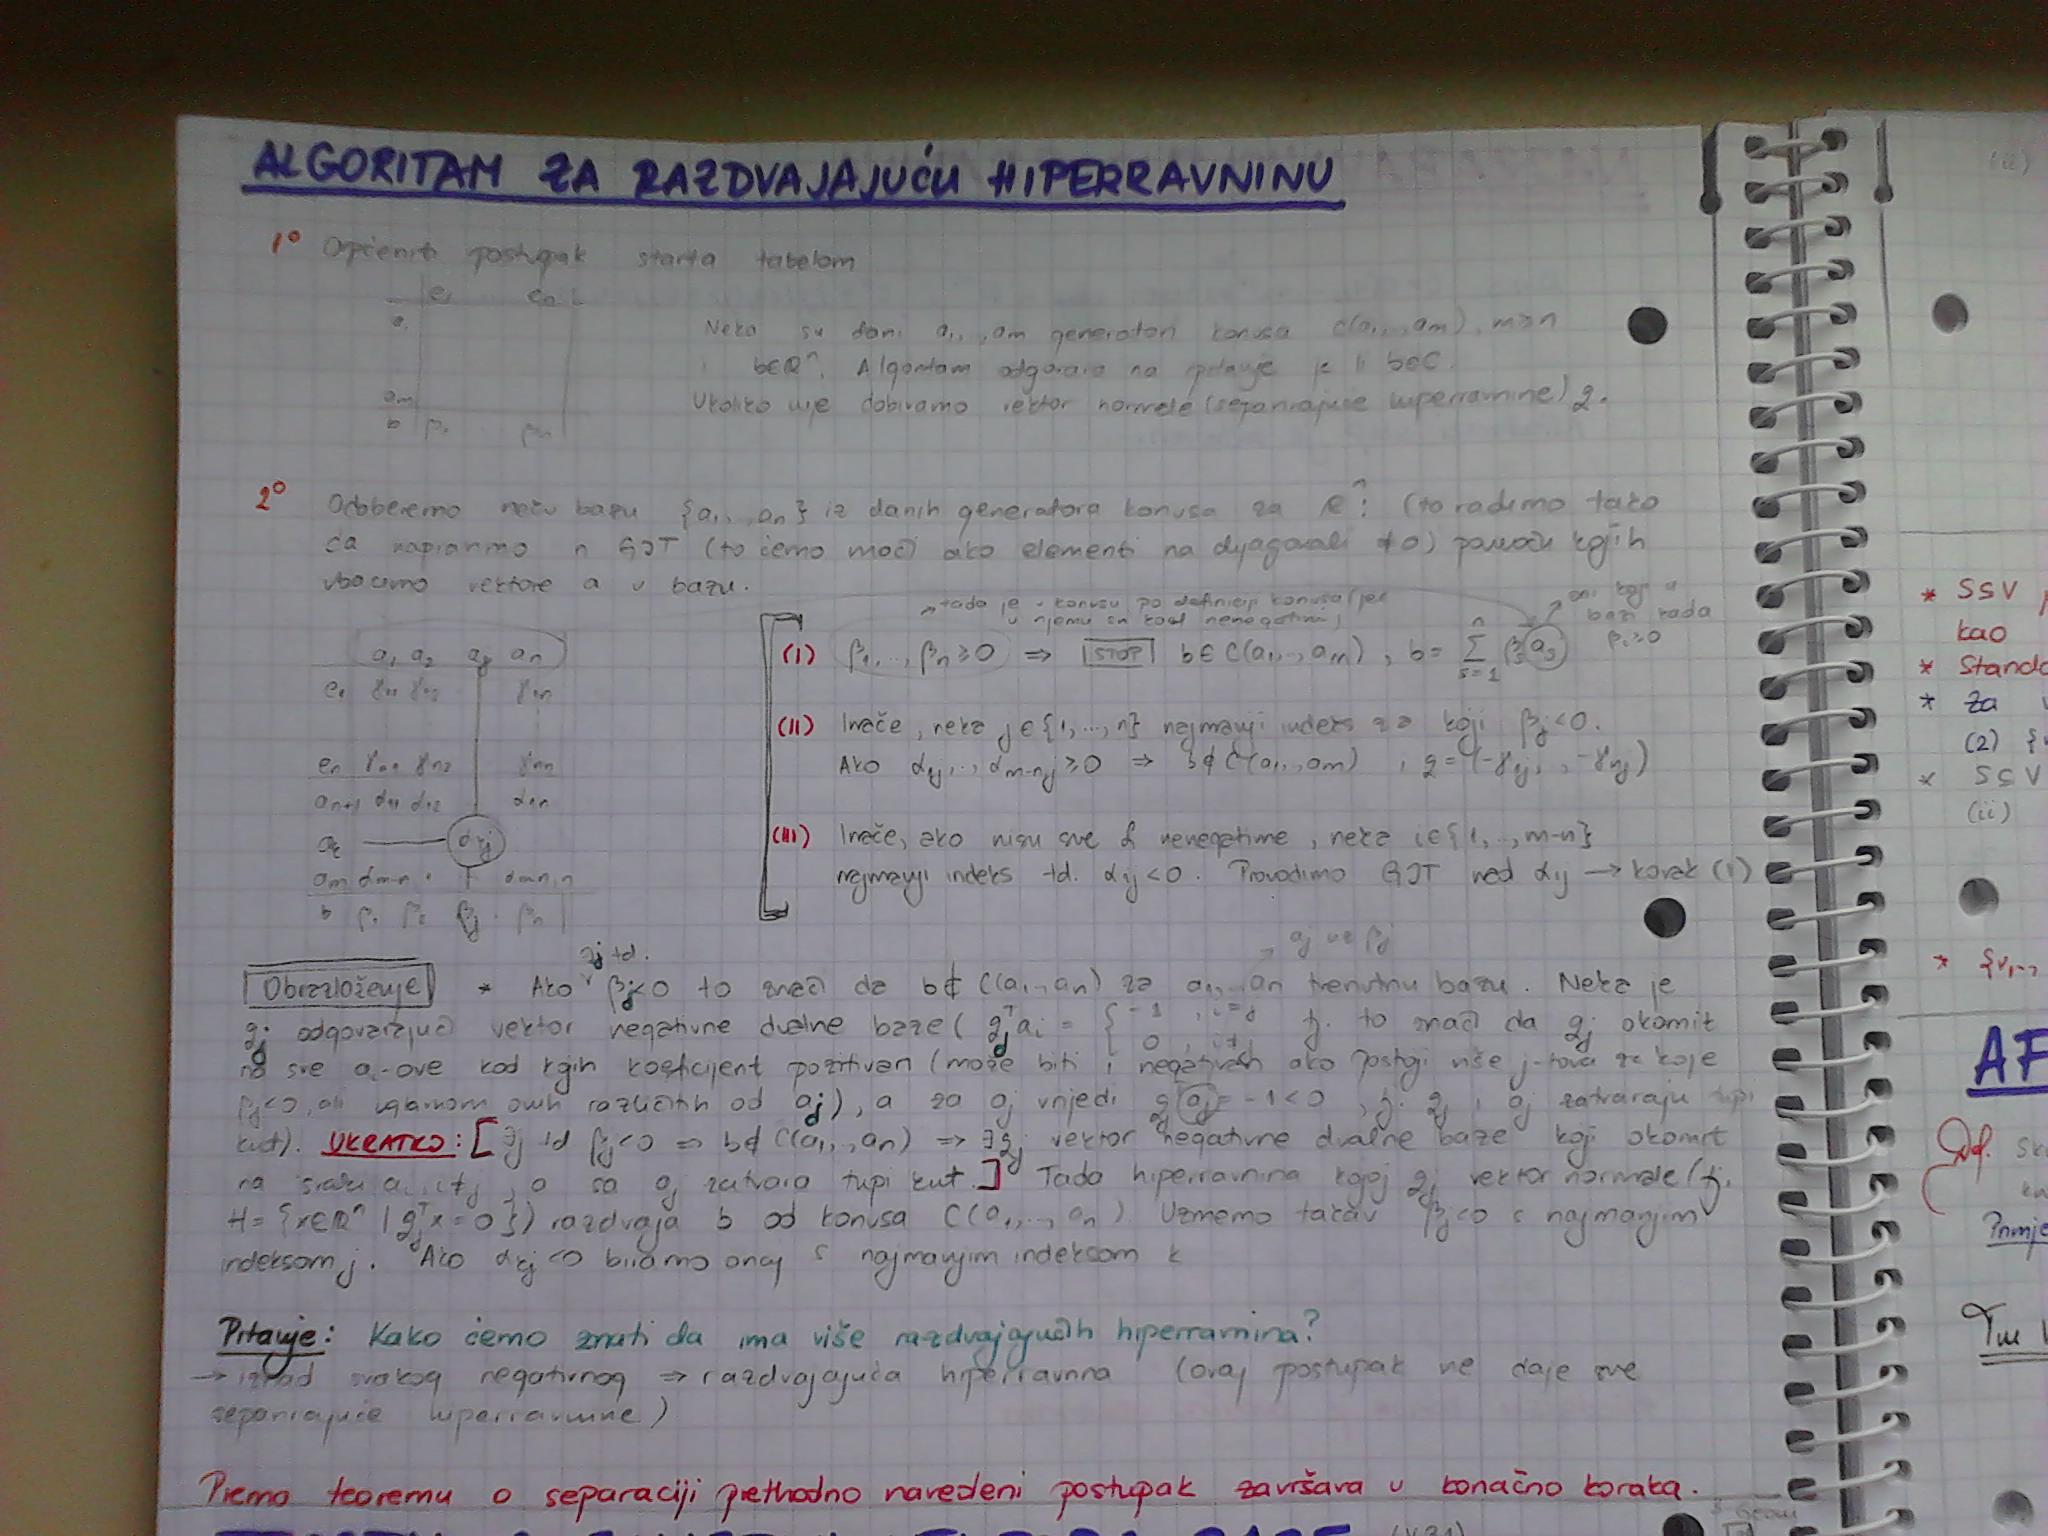 ALGORITAM ZA RAZDVAJAJUĆU HIPERRAVNINU
1° Općeniti postupak starta tabelom
e1 en
a1
am
b β1 βn
Neka su dani a1,..,am generatori konusa C(a1,..,am), m≥n
i b∈R^n. Algoritam odgovara na pitanje je li b∈C.
Ukoliko nije dobivamo vektor normale (separirajuće hiperravnine) g.
2° Odberemo neku bazu {a1,..,an} iz danih generatora konusa za R^n: (to radimo tako
da napravimo n GJT (to ćemo moći ako elementi na dijagonali ≠0) pomoću kojih
ubacimo vektore a u bazu.
a1 a2 aj an
e1 γ11 γ12 γ1n
en γn1 γn2 γnn
an+1 α11 α12 α1n
ak αkj
am αm-n,1 αm-n,n
b β1 β2 βj βn
→ tada je u konusu po definiciji konusa (jer
u njemu su koef nenegativni)
oni koji u
bazi kada
βi≥0
(I) β1,..,βn≥0 ⇒ STOP b∈C(a1,..,am), b= Σ_{s=1}^{n} βs as
(II) Inače, neka j∈{1,...,n} najmanji indeks za koji βj<0.
Ako α1j,..,αm-nj≥0 ⇒ b∉C(a1,..,am), g=(-γ1j, , -γnj)
(III) Inače, ako nisu sve α nenegativne, neka i∈{1,..,m-n}
najmanji indeks td. αij<0. Provodimo GJT nad αij → korak (I)
∃j td.
→ aj uz βj
Obrazloženje * Ako βj<0 to znači da b∉C(a1,..,an) za a1,..,an trenutnu bazu. Neka je
gj odgovarajući vektor negativne dualne baze (gj^T ai = { -1, i=j tj. to znači da gj okomit
0, i≠j
na sve ai-ove kod kojih koeficijent pozitivan (može biti i negativan ako postoji više j-tova za koje
βj<0, ali uglavnom ovih različitih od aj), a za aj vrijedi g aj = -1<0, tj. gj i aj zatvaraju tupi
kut). UKRATKO: [∃j td βj<0 ⇒ b∉C(a1,..,an) ⇒ ∃gj vektor negativne dualne baze koji okomit
na svaki ai, i≠j, a sa aj zatvara tupi kut.] Tada hiperravnina kojoj gj vektor normale (tj.
H={x∈R^n | gj^T x=0}) razdvaja b od konusa C(a1,..,an). Uzmemo takav βj<0 s najmanjim
indeksom j. Ako αkj<0 biramo onaj s najmanjim indeksom k
Pitanje: Kako ćemo znati da ima više razdvajajućih hiperravnina?
→ iznad svakog negativnog ⇒ razdvajajuća hiperravnina (ovaj postupak ne daje sve
separirajuće hiperravnine)
Prema teoremu o separaciji prethodno navedeni postupak završava u konačno koraka.
(ii)
* SSV
kao
* Standa
* Za
(2)
* SSV
(ii)
* {v1,
AF
Def. Sk
Primje
Tm